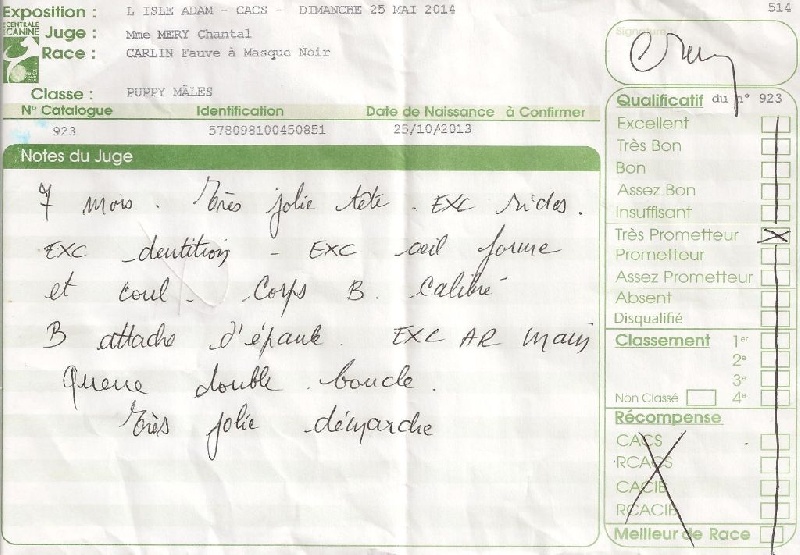 Exposition : L ISLE ADAM - CACS - DIMANCHE 25 MAI 2014
514
CENTRALE CANINE
Juge : Mme MERY Chantal
Race : CARLIN Fauve à Masque Noir
Classe : PUPPY MÂLES
N° Catalogue Identification Date de Naissance à Confirmer
923 578098100450851 25/10/2013
Notes du Juge
7 mois. Très jolie tête. EXC rides.
EXC dentition - EXC œil forme
et coul. Corps B. calibré
B attache d'épaule EXC AR main
Queue double boucle.
Très jolie démarche
Signature
Qualificatif du n° 923
Excellent
Très Bon
Bon
Assez Bon
Insuffisant
Très Prometteur
Prometteur
Assez Prometteur
Absent
Disqualifié
Classement 1er
2e
3e
Non Classé 4e
Récompense
CACS
RCACS
CACIB
RCACIB
Meilleur de Race